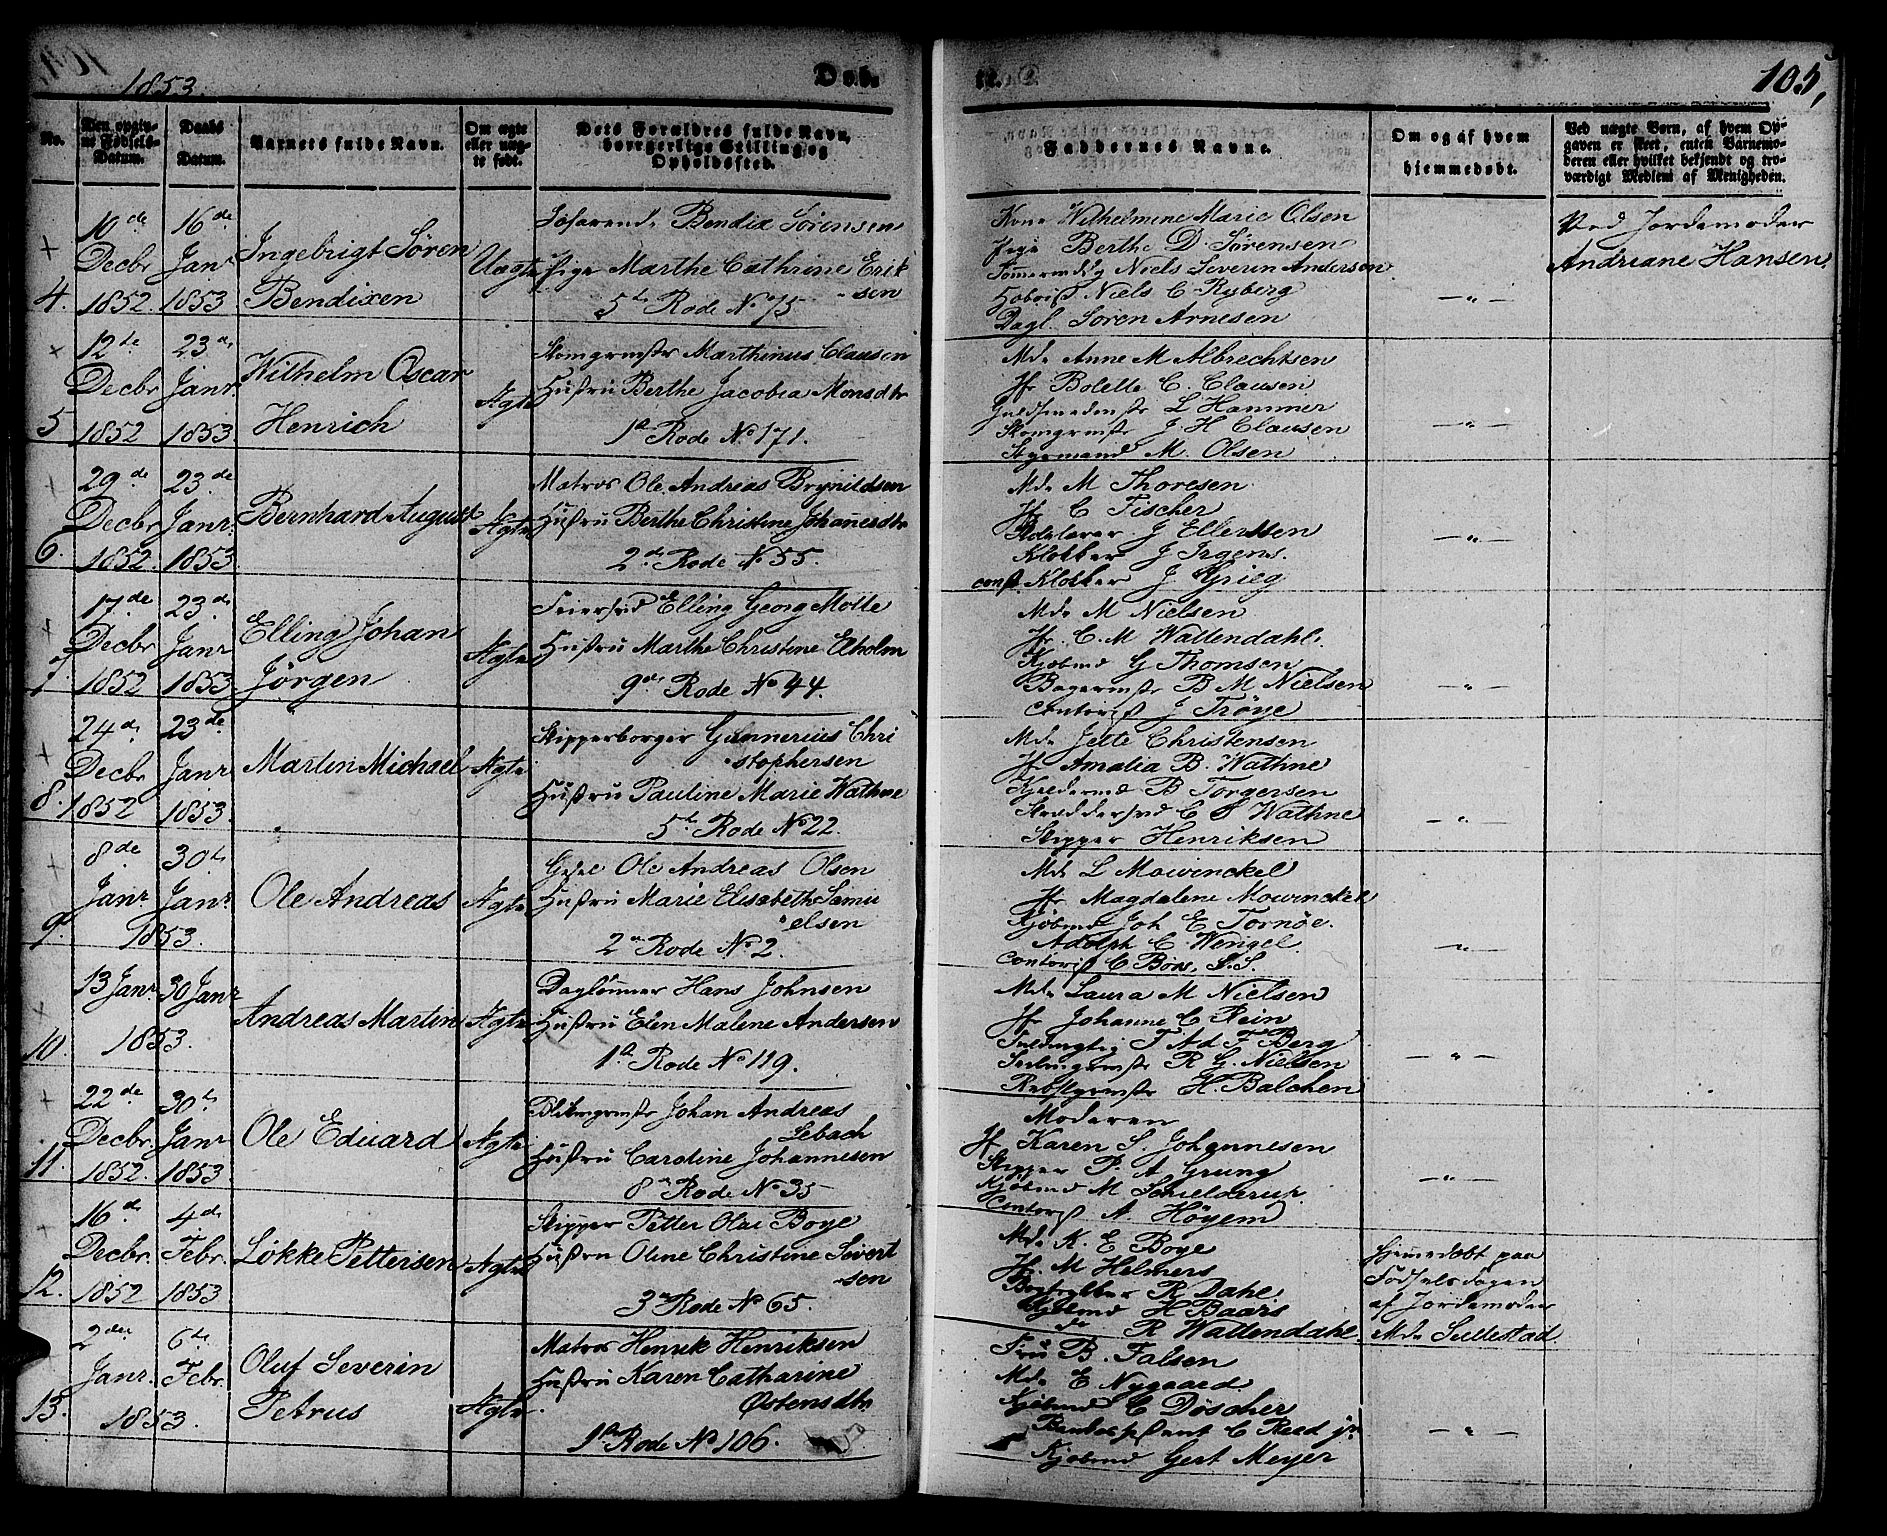 1853.
Døb-
te.
105,
No.
Den opgivne Fødsels-Datum.
Daabs Datum.
Barnets fulde Navn.
Om ægte eller uægte født.
Dets Forældres fulde Navn, borgerlige Stilling og Opholdssted.
Faddernes Navne.
Om og af hvem hjemmedøbt.
Ved uægte Børn, af hvem Opgaven er skeet, enten Barnemoderen eller hvilket bekjendt og troværdigt Medlem af Menigheden.
4.
10de Decbr 1852.
16de Janr 1853
Ingebrigt Søren Bendixen
Uægte
Søfarende Bendix Sørensen
Pige Marthe Cathrine Erik
-sen
5te Rode No 75
Kone Wilhelmine Marie Olsen
Pige Berthe D. Sørensen
Niels Severin Andersen
Niels C Ryberg
Dagl. Søren Arnesen
— " —
Ved Jordemoder
Andriane Hansen.
5
12te Decbr 1852
23de Janr. 1853
Wilhelm Oscar Henrich
Ægte
Skomgrmstr Marthinus Clausen
Hustru Berthe Jacobia Monsdtr
1ste Rode No 171.
Md. Anne M Albrechtsen
Jfr Bolette C. Clausen
Guldsmedmstr L Hammer
Skomgrmstr J H Clausen
Styrmand M. Olsen
— " —
6.
29de Decbr 1852.
23de Janr. 1853
Bernhard August
Ægte
Matros Ole Andreas Brynildsen
Hustru Berthe Christine Johannesdtr
2den Rode No 55.
Md. M Thoresen
Jfr C Fischer
J Ellerssen
Klokker J Irgens.
const. Klokker J Grieg
— " —
7.
17de Decbr 1852
23de Janr 1853
Elling Johan Jørgen
Ægte
Feiersvd Elling Georg Molte
Hustru Marthe Christine Ekholm
9de Rode No 44.
Md. M Nielsen
Jfr. C. M Wallendahl.
Kjøbmd G Thomsen
Bagermstr B M Nielsen
Contorist J Trøye
— " —
8.
24de Decbr 1852
23de Janr 1853.
Martin Michael
Ægte
Skipperborger Gunnerius Chri
-stophersen
Hustru Pauline Marie Wathne
5te Rode No 22.
Md. Jette Christensen
Jfr Amalia B. Wathne
B Torgersen
Skreddersvd C S Wathne
Skipper Henriksen
— " —
9.
8de Janr
30te Janr.
1853.
Ole Andreas
Ægte
Ole Andreas Olsen
Hustru Marie Elisabeth Samu
-elsen
2den Rode No 2.
Md. L Mowinckel
Jfr Magdalene Mowinckel
Kjøbmd Joh E Tornøe.
Adolph C. Wengel
Contorist C Børs, S. S.
— " —
10.
13 Janr.
30 Janr
1853.
Andreas Martin
Ægte
Daglønner Hans Johnsen
Hustru Elen Malene Andersen
1ste Rode No 119.
Md. Laura M Nielsen
Jfr Johanne C Rein
Fuldmægtig T Ad F Berg
R G. Nielsen
Rebslgrmstr H. Balchen
— " —
11.
22de Decbr. 1852.
30te Janr 1853
Ole Eduard
Ægte
Blikmgrmstr Johan Andreas
Lebach
Hustru Caroline Johannesen
8de Rode No 35
Moderen
Jfr Karen S. Johannesen
Skipper P. A Grung
Kjøbmd M Schielderup.
Contorist A. Høyem
— " —
12.
16de Decbr. 1852
4de Febr. 1853
Løkke Pettersen
Ægte
Skipper Petter Olai Boye
Hustru Oline Christine Sivert
-sen
3die Rode No 65.
Md. K. E Boye
Jfr. M Helmers
Bogtrykker R Dahl
Kjøbmd H Baars
do R Wallendahl.
Hjemmedøbt paa
Fødselsdagen
af Jordemoder
Md. Sullestad
13.
2den Janr.
6te Febr.
1853.
Oluf Severin Petrus
Ægte.
Matros Henrik Henriksen
Hustru Karen Catharine
Østensdtr.
1ste Rode No 106.
Fru B. Falsen
Md. E Nygaard
Kjøbmd C Döscher
C Reed jr
Kjøbmd Gert Meyer
— " —